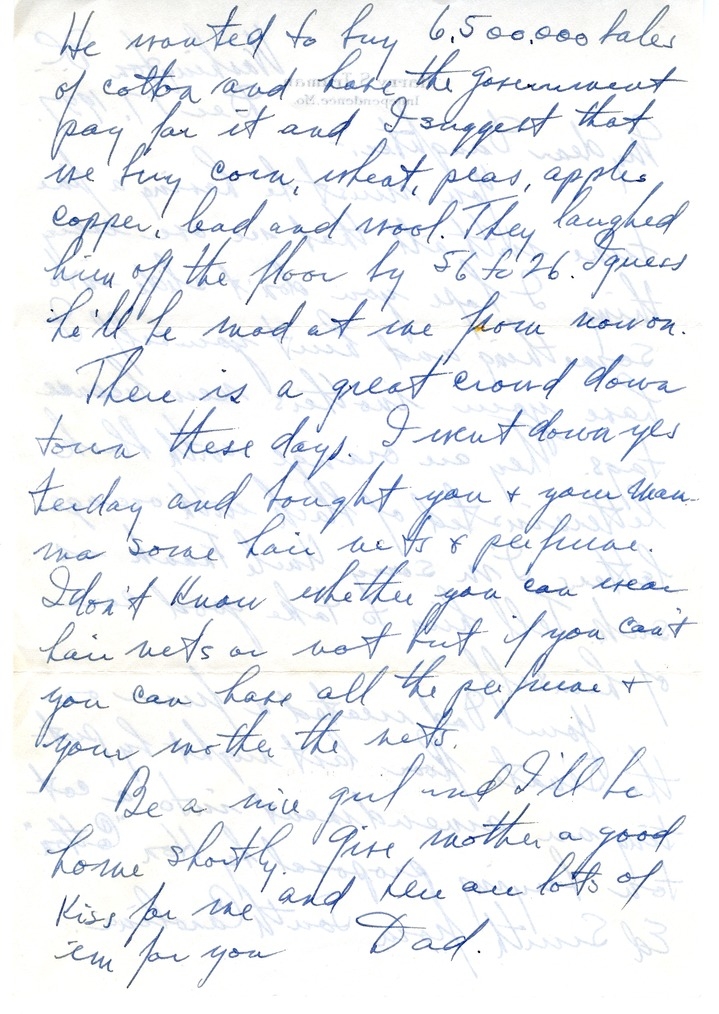 He wanted to buy 6,500,000 bales
of cotton and have the government
pay for it and I suggest that
we buy corn, wheat, peas, apples
copper, lead and wool. They laughed
him off the floor by 56 to 26. I guess
he'll be mad at me from now on.
There is a great crowd down
town these days. I went down yes
terday and bought you + your mam-
ma some hair nets & perfume.
I don't know whether you can wear
hair nets or not but if you can't
you can have all the perfume +
your mother the nets.
Be a nice girl and I'll be
home shortly. Give mother a good
kiss for me and here are lots of
'em for you Dad.